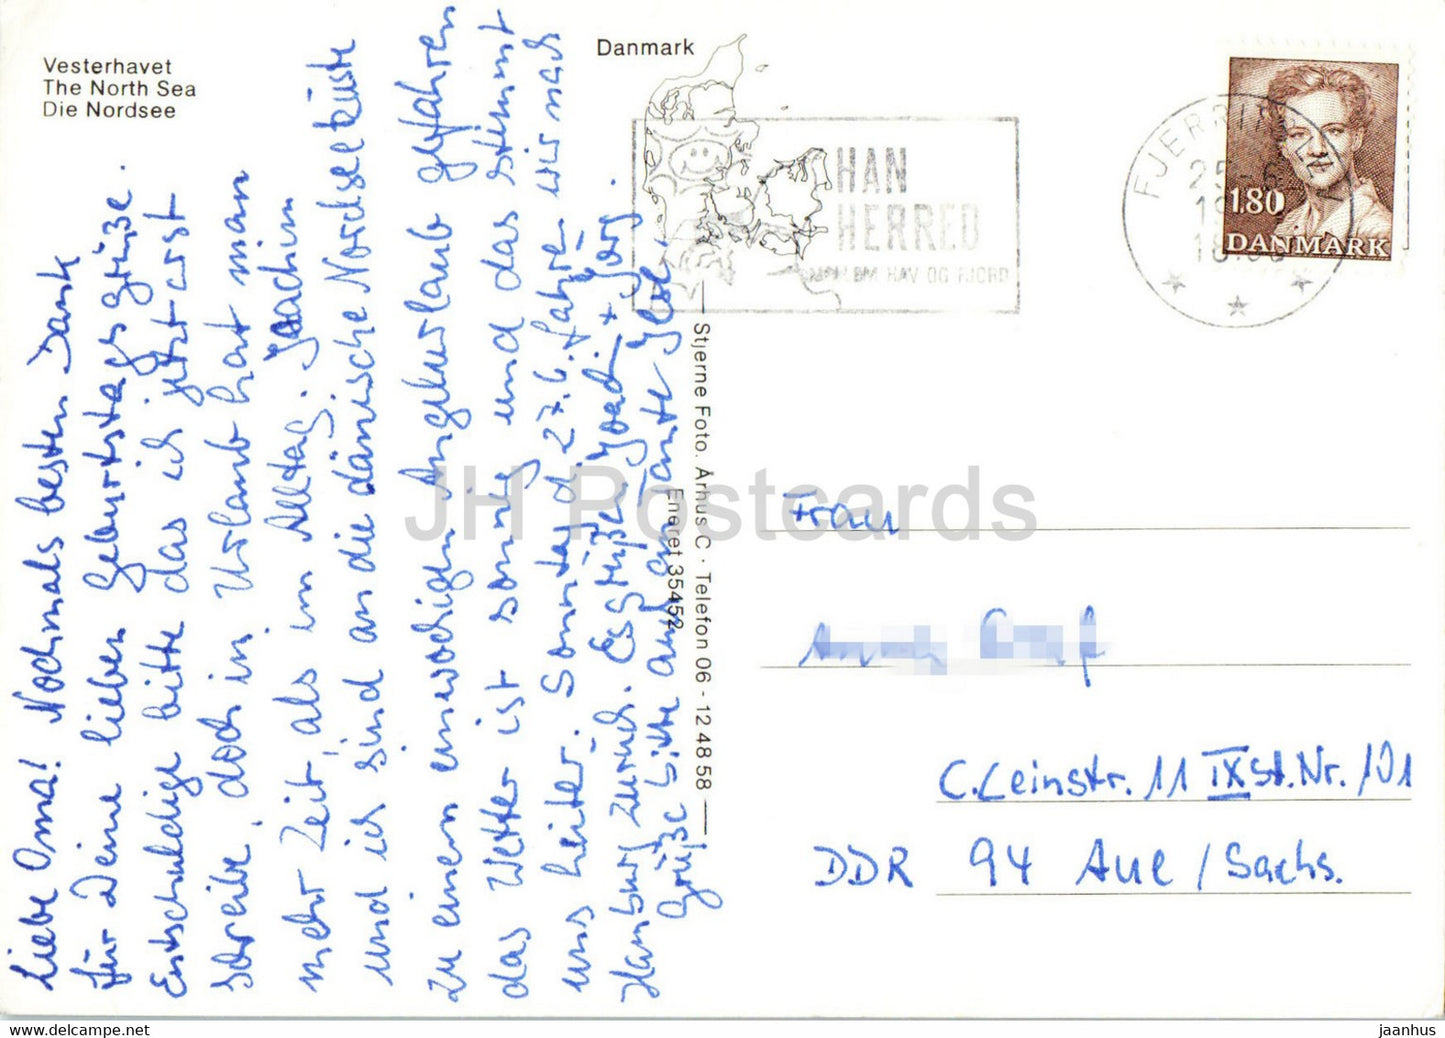 Vesterhavet
The North Sea
Die Nordsee
Danmark
Liebe Oma! Nochmals besten Dank
für Deine lieben Geburtstagsgrüße.
Entschuldige bitte das ich jetzt erst
schreibe, doch in Urlaub hat man
mehr Zeit, als im Alltag. Joachim
und ich sind an die dänische Nordseeküste
zu einem einwöchigen Angelurlaub gefahren
das Wetter ist sonnig und das stimmt
uns heiter. Sonntag d. 27.6. fahren wir nach
Hamburg zurück. Es grüßen Joach. + Jörg.
Grüße bitte auch an Tante Ilse.
Stjerne Foto. Århus C · Telefon 06 - 12 48 58
Eneret 35452
HAN
HERRED
MELLEM HAV OG FJORD
FJERRITSLEV
25.-6
18.00
1.80
DANMARK
JH Postcards
Frau
C. Leinstr. 11 IX St. Nr. 101
DDR 94 Aue / Sachs.
hipomarket.com
jaanhus